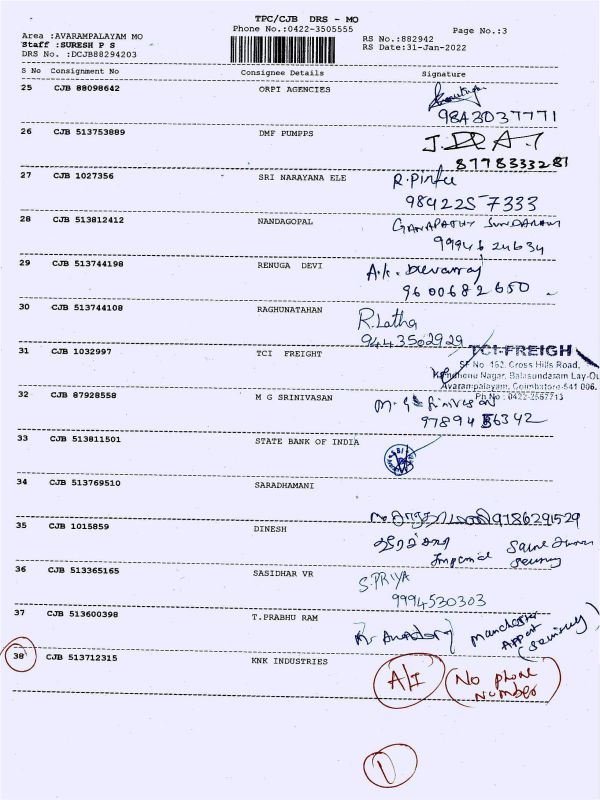 TPC/CJB DRS - MO
Phone No.:0422-3505555
Page No.:3
Area :AVARAMPALAYAM MO
Staff :SURESH P S
DRS No. :DCJB88294203
RS No.:882942
RS Date:31-Jan-2022
S No Consignment No Consignee Details Signature
25 CJB 88098642 ORPI AGENCIES
9843037771
26 CJB 513753889 DMF PUMPPS
8778333281
27 CJB 1027356 SRI NARAYANA ELE R.Pintu
9842257333
28 CJB 513812412 NANDAGOPAL GANAPATHY SUNDARAM
9994624634
29 CJB 513744198 RENUGA DEVI A.K. Devaraj
9600682650
30 CJB 513744108 RAGHUNATAHAN R.Latha
9443502929
31 CJB 1032997 TCI FREIGHT TCI-FREIGH
SF No 162, Cross Hills Road,
Nagar, Balasundaram Lay-Ou
Avarampalayam, Coimbatore-641 006.
Ph No : 0422-2567713
32 CJB 87928558 M G SRINIVASAN M.G. Srinivasan
97894 86342
33 CJB 513811501 STATE BANK OF INDIA
34 CJB 513769510 SARADHAMANI
9786291529
35 CJB 1015859 DINESH
Imperial
Security
36 CJB 513365165 SASIDHAR VR S.PRIYA
9994530303
37 CJB 513600398 T.PRABHU RAM
Manchester
Appart
(Security)
38 CJB 513712315 KNK INDUSTRIES A/I (No phone
number)
1